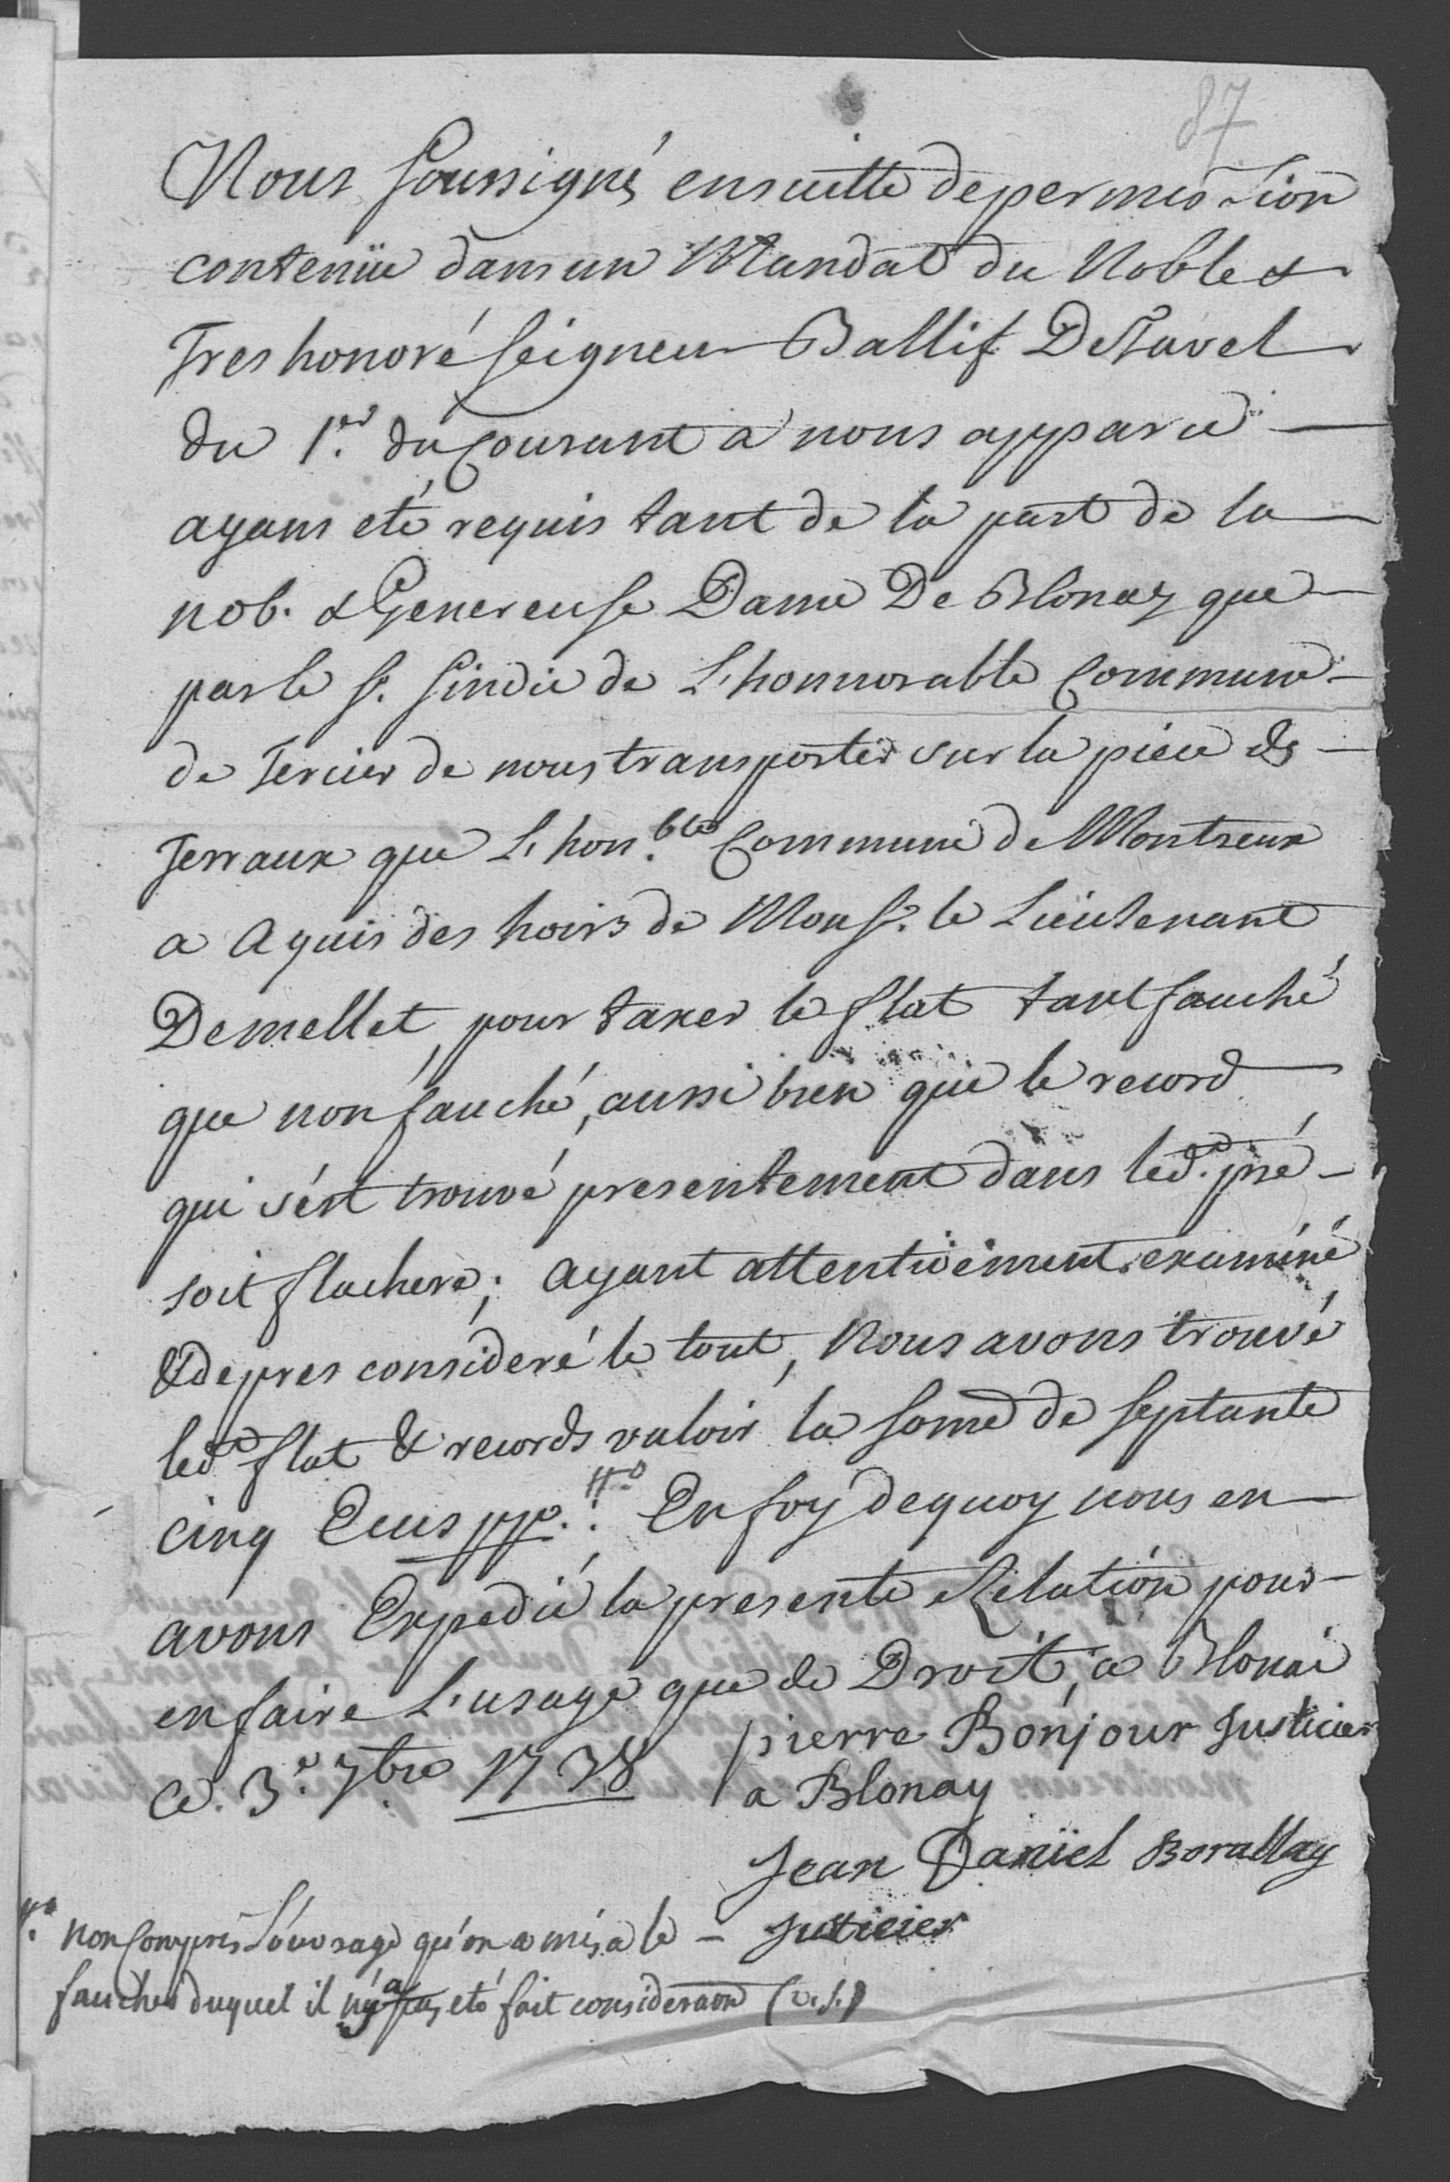 87
Nous soussignés ensuitte de permission
contenüe dans un Mandat du Noble &
Tres honoré seigneur Ballif DeTavel
du 1.er du Courant a nous apparu
ayans eté requis tant de la part de la
nob. & Genereuse Dame De Blonay que
par le Sr. sindic de L'honnorable Commune
de Tercier de nous transporter sur la piece Es
Terraux que L'hon.ble Commune de Montreux
a aquis des hoirs de Monsr. le Lieutenant
Demellet, pour taxer le flat tant fauché
que non fauché, aussi bien que le record
qui s'ést trouvé presentement dans led. pré
soit flachere; ayant attentivement examiné
& de pres consideré le tout, Nous avons trouvé
led. flat & records valoir la some de septante
cinq Ecus ppe. En foy dequoy nous en
avons Expedié la presente Relation pour
en faire L'usage que de Droit, a Blonai
ce. 3.e 7bre 1738
pierre Bonjour Justicier
a Blonay
Jean Daniel Borallay
Justicier
non Compris L'ouvrage qu'on a mis a le
faucher duquel il n'y a pas eté fait consideraon (v. s.)